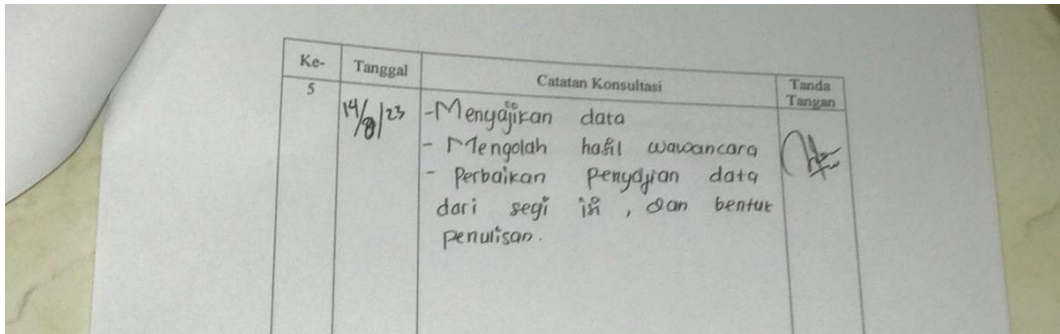 Ke- Tanggal Catatan Konsultasi Tanda Tangan
5
14/8/23
-Menyajikan data
- Mengolah hasil wawancara
- Perbaikan Penyajian data
dari segi isi , dan bentuk
penulisan.